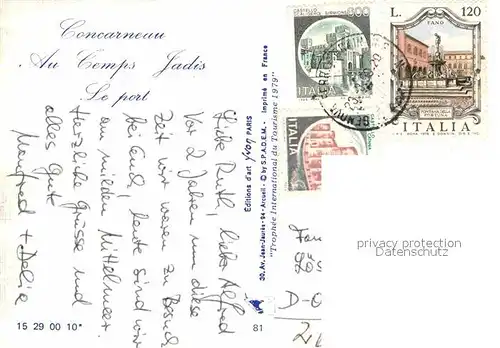 Concarneau
Au Temps Jadis
Le port
Liebe Ruth, lieber Alfred
Vor 2 Jahren um diese
Zeit wir waren zu Besuch
bei Euch, heute sind wir
am milden Mittelmeer.
Herzliche Grüsse und
alles Gute
Manfred + Delia
Editions d'art yvon PARIS
30, Av. Jean-Jaurès - 94 - Arcueil - © by S.P.A.D.E.M. - Imprimé en France
"Trophée International du Tourisme 1979"
15 29 00 10
81
CASTELLO
SIRMIONE
800
ITALIA
L. 120
FANO
FORTUNA
ITALIA
ITALIA
GENOVA
D-
privacy protection
Datenschutz